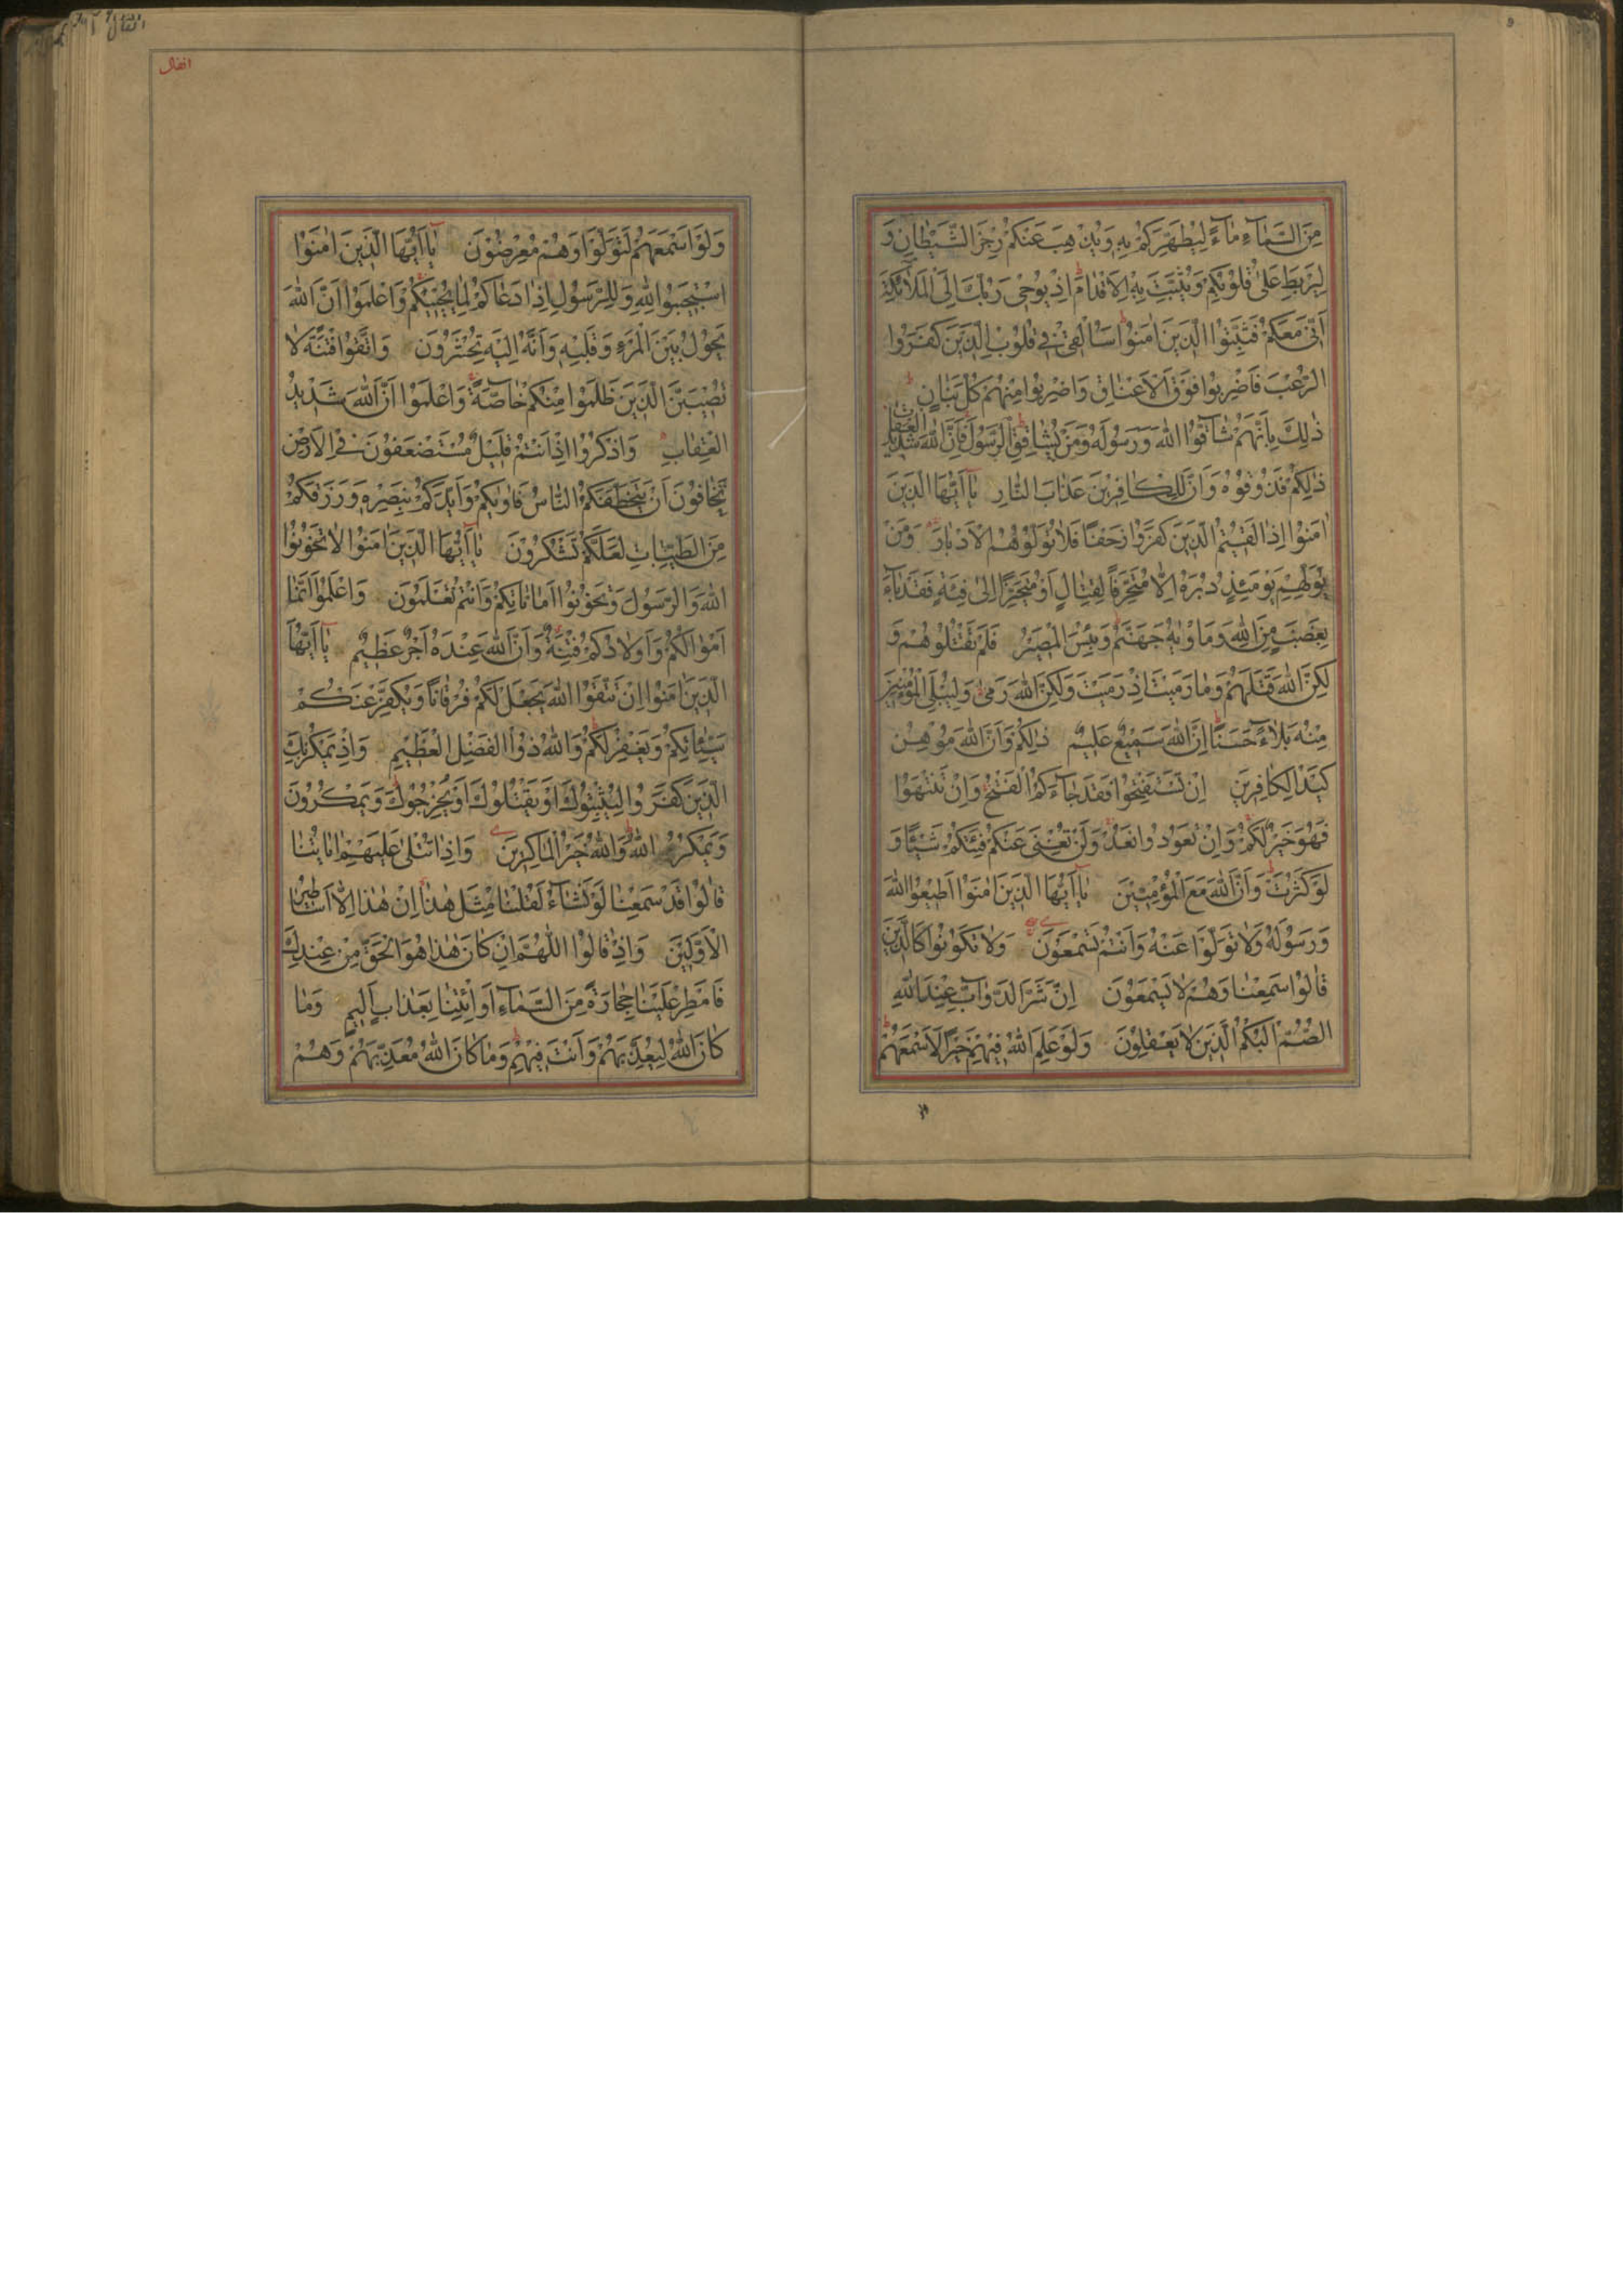 مِنَ السَّمَاءِ مَاءً لِيُطَهِّرَكُمْ بِهِ وَيُذْهِبَ عَنْكُمْ رِجْزَ الشَّيْطَانِ وَ
لِيَرْبِطَ عَلَىٰ قُلُوبِكُمْ وَيُثَبِّتَ بِهِ الْأَقْدَامَ اِذْ يُوحِي رَبُّكَ اِلَى الْمَلَائِكَةِ
اَنِّي مَعَكُمْ فَثَبِّتُوا الَّذِينَ اٰمَنُوا سَاُلْقِي فِي قُلُوبِ الَّذِينَ كَفَرُوا
الرُّعْبَ فَاضْرِبُوا فَوْقَ الْاَعْنَاقِ وَاضْرِبُوا مِنْهُمْ كُلَّ بَنَانٍ
ذٰلِكَ بِاَنَّهُمْ شَاقُّوا اللّٰهَ وَرَسُولَهُ وَمَنْ يُشَاقِقِ الرَّسُولَ فَاِنَّ اللّٰهَ شَدِيدُ الْعِقَابِ
ذٰلِكُمْ فَذُوقُوهُ وَاَنَّ لِلْكَافِرِينَ عَذَابَ النَّارِ يَا اَيُّهَا الَّذِينَ
اٰمَنُوا اِذَا لَقِيتُمُ الَّذِينَ كَفَرُوا زَحْفًا فَلَا تُوَلُّوهُمُ الْاَدْبَارَ وَمَنْ
يُوَلِّهِمْ يَوْمَئِذٍ دُبُرَهُ اِلَّا مُتَحَرِّفًا لِقِتَالٍ اَوْ مُتَحَيِّزًا اِلَىٰ فِئَةٍ فَقَدْ بَاءَ
بِغَضَبٍ مِنَ اللّٰهِ وَمَأْوٰيهُ جَهَنَّمُ وَبِئْسَ الْمَصِيرُ فَلَمْ تَقْتُلُوهُمْ وَ
لٰكِنَّ اللّٰهَ قَتَلَهُمْ وَمَا رَمَيْتَ اِذْ رَمَيْتَ وَلٰكِنَّ اللّٰهَ رَمَىٰ وَلِيُبْلِيَ الْمُؤْمِنِينَ
مِنْهُ بَلَاءً حَسَنًا اِنَّ اللّٰهَ سَمِيعٌ عَلِيمٌ ذٰلِكُمْ وَاَنَّ اللّٰهَ مُوهِنُ
كَيْدِ الْكَافِرِينَ اِنْ تَسْتَفْتِحُوا فَقَدْ جَاءَكُمُ الْفَتْحُ وَاِنْ تَنْتَهُوا
فَهُوَ خَيْرٌ لَكُمْ وَاِنْ تَعُودُوا نَعُدْ وَلَنْ تُغْنِيَ عَنْكُمْ فِئَتُكُمْ شَيْئًا وَ
لَوْ كَثُرَتْ وَاَنَّ اللّٰهَ مَعَ الْمُؤْمِنِينَ يَا اَيُّهَا الَّذِينَ اٰمَنُوا اَطِيعُوا اللّٰهَ
وَرَسُولَهُ وَلَا تَوَلَّوْا عَنْهُ وَاَنْتُمْ تَسْمَعُونَ وَلَا تَكُونُوا كَالَّذِينَ
قَالُوا سَمِعْنَا وَهُمْ لَا يَسْمَعُونَ اِنَّ شَرَّ الدَّوَابِّ عِنْدَ اللّٰهِ
الصُّمُّ الْبُكْمُ الَّذِينَ لَا يَعْقِلُونَ وَلَوْ عَلِمَ اللّٰهُ فِيهِمْ خَيْرًا لَاَسْمَعَهُمْ
انفال
وَلَوْ اَسْمَعَهُمْ لَتَوَلَّوْا وَهُمْ مُعْرِضُونَ يَا اَيُّهَا الَّذِينَ اٰمَنُوا
اسْتَجِيبُوا لِلّٰهِ وَلِلرَّسُولِ اِذَا دَعَاكُمْ لِمَا يُحْيِيكُمْ وَاعْلَمُوا اَنَّ اللّٰهَ
يَحُولُ بَيْنَ الْمَرْءِ وَقَلْبِهِ وَاَنَّهُ اِلَيْهِ تُحْشَرُونَ وَاتَّقُوا فِتْنَةً لَا
تُصِيبَنَّ الَّذِينَ ظَلَمُوا مِنْكُمْ خَاصَّةً وَاعْلَمُوا اَنَّ اللّٰهَ شَدِيدُ
الْعِقَابِ وَاذْكُرُوا اِذْ اَنْتُمْ قَلِيلٌ مُسْتَضْعَفُونَ فِي الْاَرْضِ
تَخَافُونَ اَنْ يَتَخَطَّفَكُمُ النَّاسُ فَاٰوٰيكُمْ وَاَيَّدَكُمْ بِنَصْرِهِ وَرَزَقَكُمْ
مِنَ الطَّيِّبَاتِ لَعَلَّكُمْ تَشْكُرُونَ يَا اَيُّهَا الَّذِينَ اٰمَنُوا لَا تَخُونُوا
اللّٰهَ وَالرَّسُولَ وَتَخُونُوا اَمَانَاتِكُمْ وَاَنْتُمْ تَعْلَمُونَ وَاعْلَمُوا اَنَّمَا
اَمْوَالُكُمْ وَاَوْلَادُكُمْ فِتْنَةٌ وَاَنَّ اللّٰهَ عِنْدَهُ اَجْرٌ عَظِيمٌ يَا اَيُّهَا
الَّذِينَ اٰمَنُوا اِنْ تَتَّقُوا اللّٰهَ يَجْعَلْ لَكُمْ فُرْقَانًا وَيُكَفِّرْ عَنْكُمْ
سَيِّئَاتِكُمْ وَيَغْفِرْ لَكُمْ وَاللّٰهُ ذُو الْفَضْلِ الْعَظِيمِ وَاِذْ يَمْكُرُ بِكَ
الَّذِينَ كَفَرُوا لِيُثْبِتُوكَ اَوْ يَقْتُلُوكَ اَوْ يُخْرِجُوكَ وَيَمْكُرُونَ
وَيَمْكُرُ اللّٰهُ وَاللّٰهُ خَيْرُ الْمَاكِرِينَ وَاِذَا تُتْلَىٰ عَلَيْهِمْ اٰيَاتُنَا
قَالُوا قَدْ سَمِعْنَا لَوْ نَشَاءُ لَقُلْنَا مِثْلَ هٰذَا اِنْ هٰذَا اِلَّا اَسَاطِيرُ
الْاَوَّلِينَ وَاِذْ قَالُوا اللّٰهُمَّ اِنْ كَانَ هٰذَا هُوَ الْحَقَّ مِنْ عِنْدِكَ
فَاَمْطِرْ عَلَيْنَا حِجَارَةً مِنَ السَّمَاءِ اَوِ ائْتِنَا بِعَذَابٍ اَلِيمٍ وَمَا
كَانَ اللّٰهُ لِيُعَذِّبَهُمْ وَاَنْتَ فِيهِمْ وَمَا كَانَ اللّٰهُ مُعَذِّبَهُمْ وَهُمْ